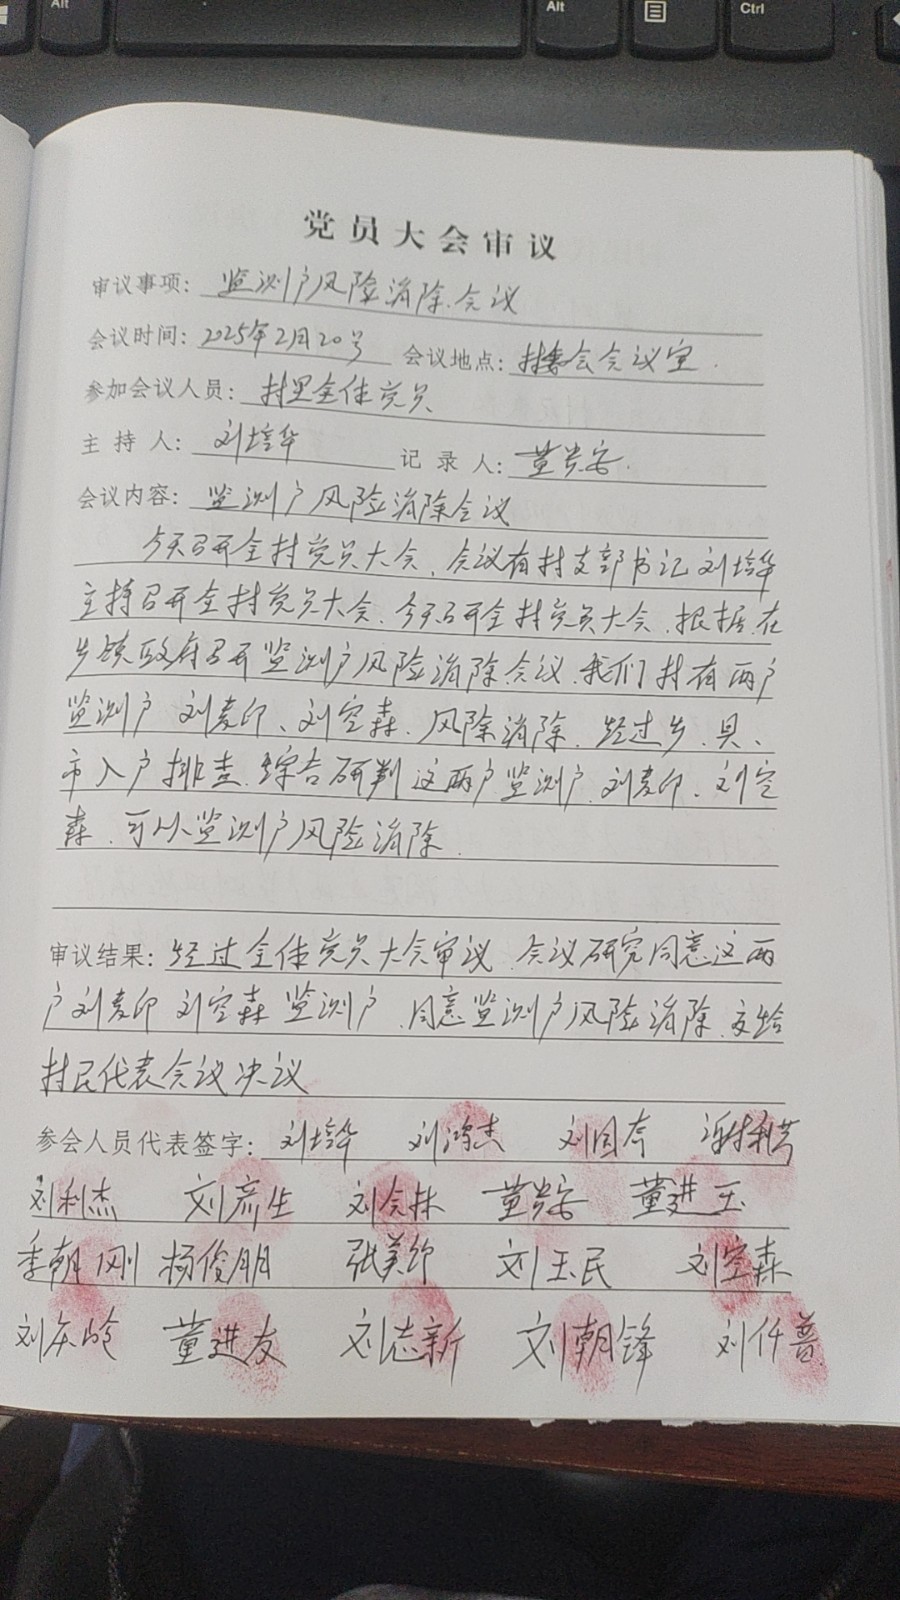 Alt
Alt
Ctrl
党员大会审议
审议事项: 监测户风险消除会议
会议时间: 2025年2月20号 会议地点: 村委会会议室.
参加会议人员: 村里全体党员
主持人: 刘培华 记录人: 董贵安.
会议内容: 监测户风险消除会议
今天召开全村党员大会、会议有村支部书记刘培华
主持召开全村党员大会、今天召开全村党员大会、根据在
乡镇政府召开监测户风险消除会议、我们村有两户
监测户 刘麦印、刘空森、风除消除、经过乡、具、
市入户排查、综合研判这两户监测户、刘麦印、刘空
森、可以监测户风险消除.
审议结果: 经过全体党员大会审议、会议研究同意这两
户刘麦印 刘空森 监测户、同意监测户风险消除、交给
村民代表会议决议
参会人员代表签字: 刘培华 刘鸿杰 刘国奇
刘利杰 刘彦生 刘会林 董贵安 董进玉
季朝刚 杨俊朋 张美印 刘玉民 刘空森
董进友 刘志新 刘朝锋 刘仟普